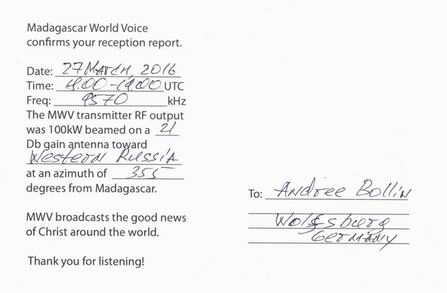 Madagascar World Voice
confirms your reception report.
Date: 27 March, 2016
Time: 18.00-19.00 UTC
Freq: 9570 kHz
The MWV transmitter RF output
was 100kW beamed on a 21
Db gain antenna toward
Western Russia
at an azimuth of 355
degrees from Madagascar.
MWV broadcasts the good news
of Christ around the world.
Thank you for listening!
To: Andree Bollin
Wolfsburg
Germany